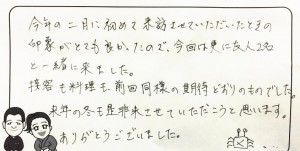 今年の二月に初めて来訪させていただいたときの
印象がとても良かったので、今回は更に友人2名
と一緒に来ました。
接客も料理も、前回同様の期待どおりのものでした。
来年の冬も是非来させていただこうと思います。
ありがとうございました。